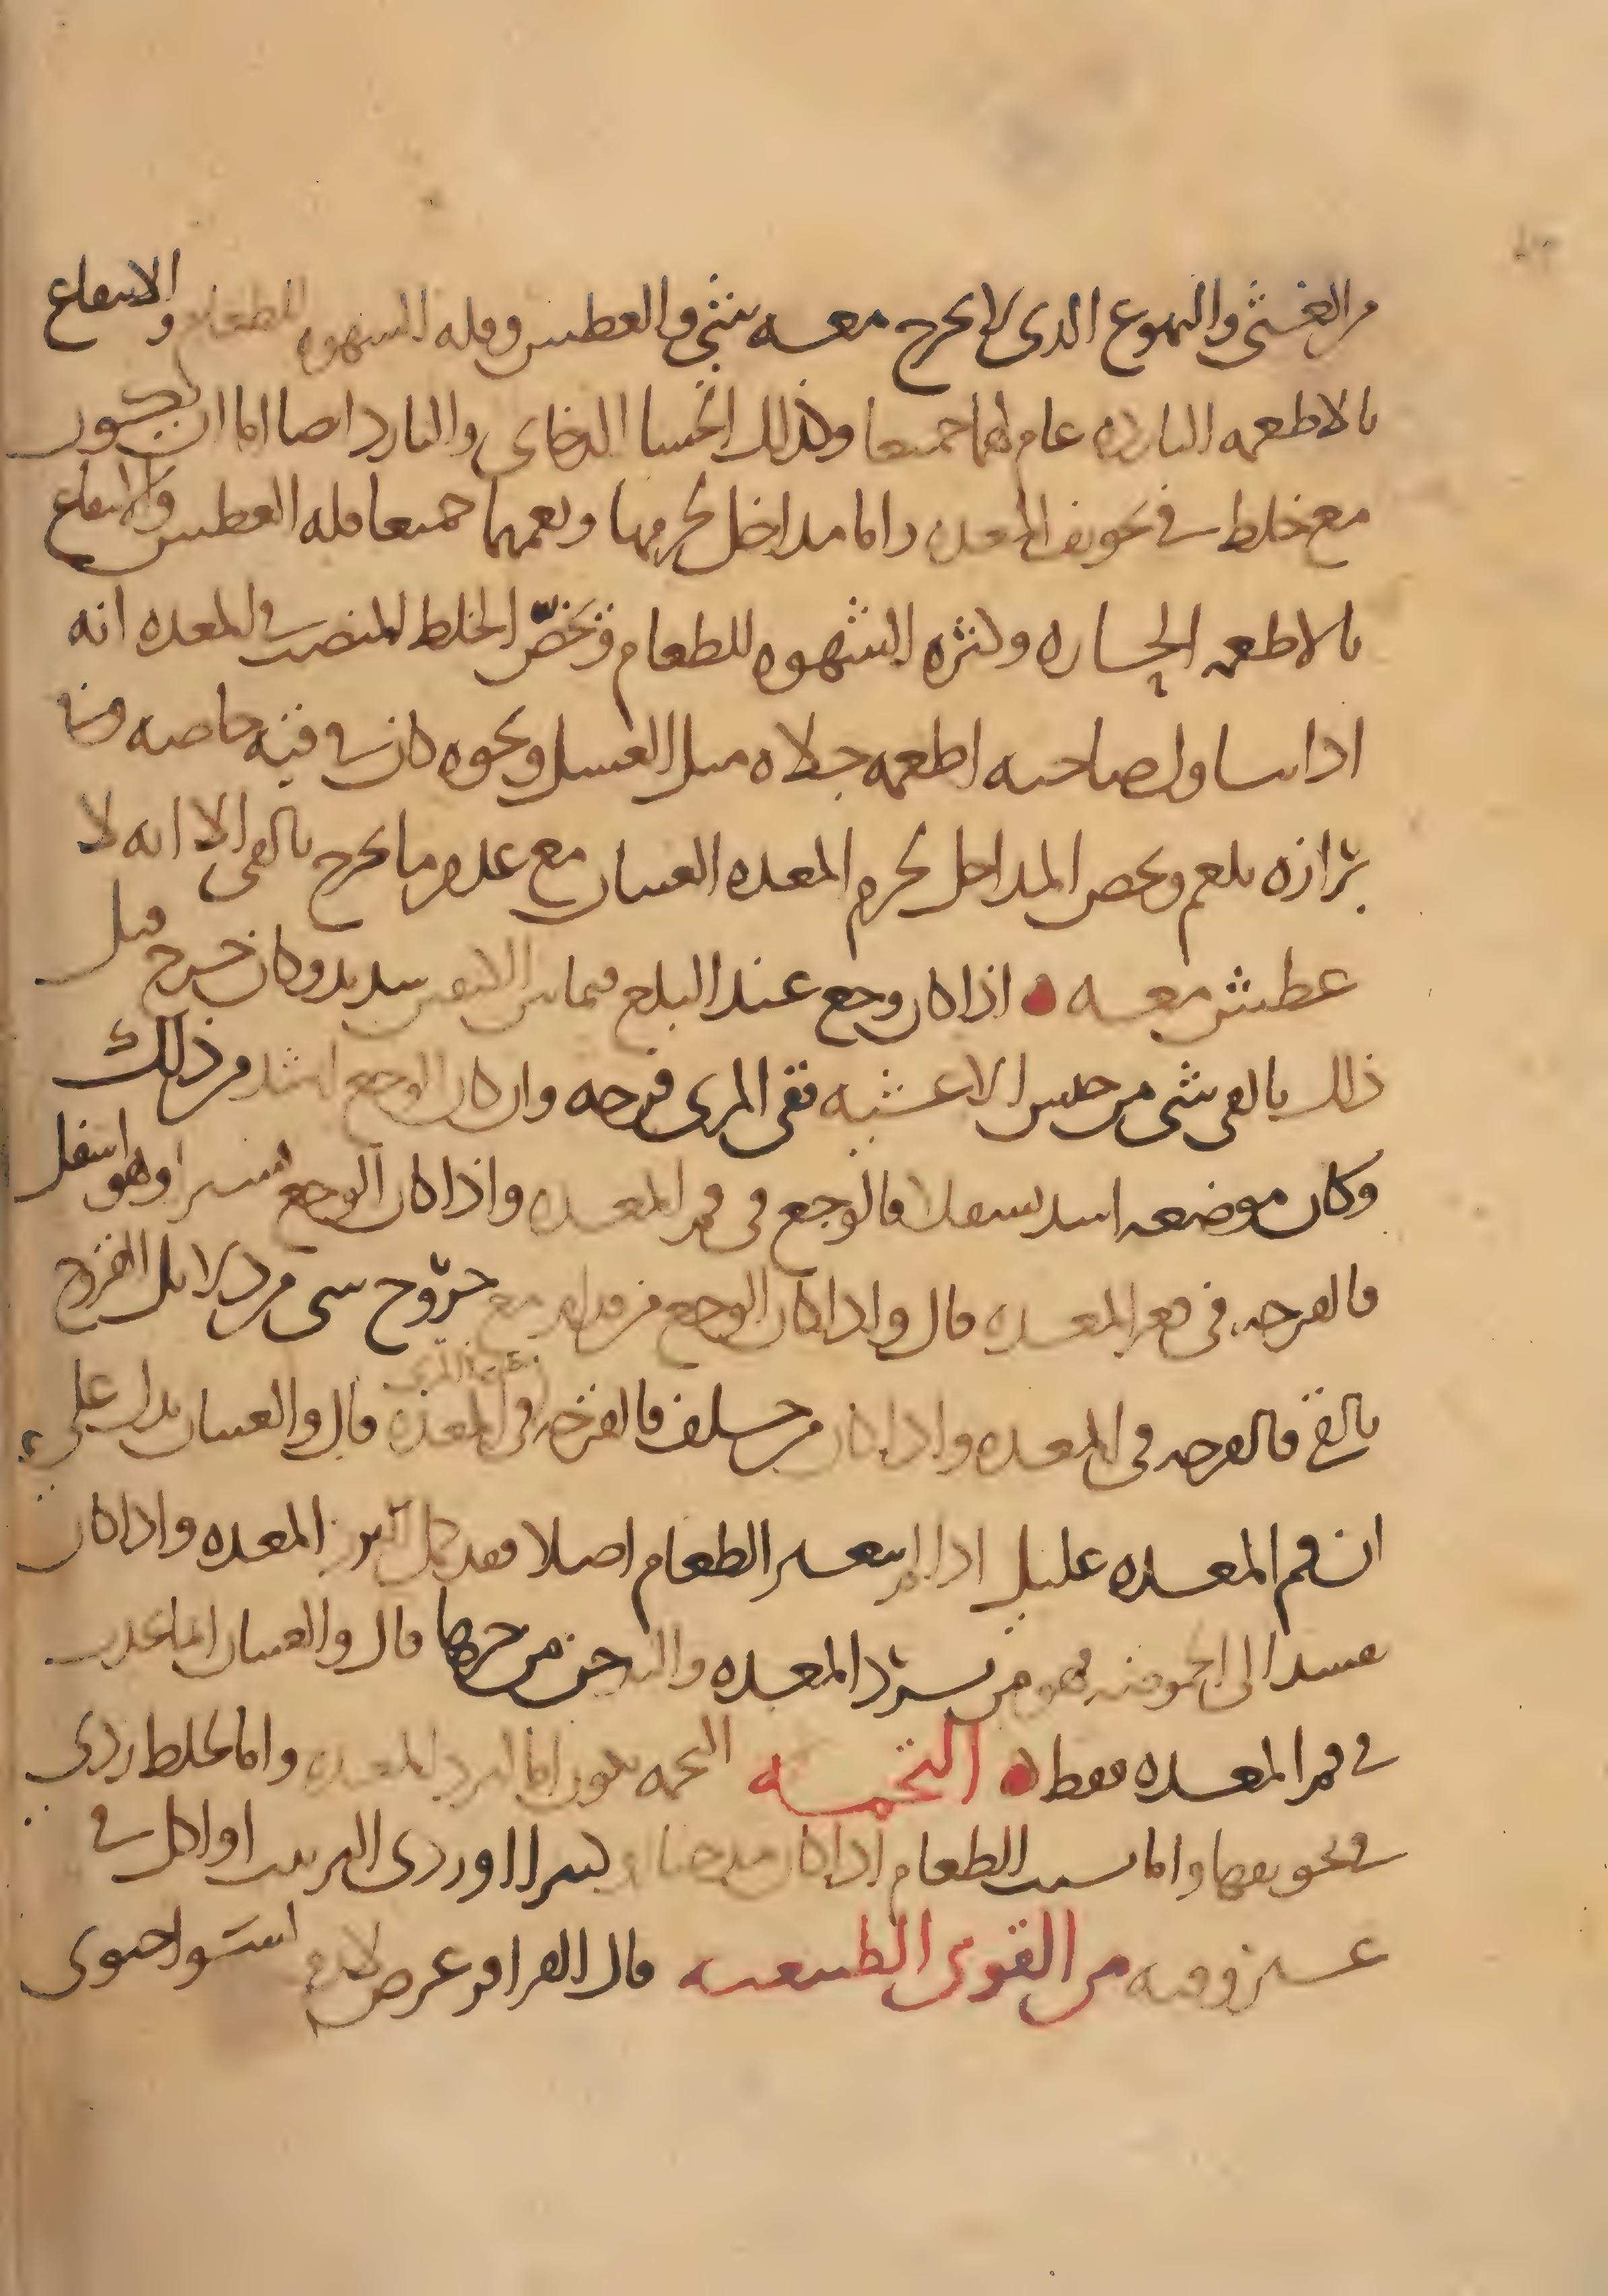 من الغثى والتهوع الذى لا يخرج معه شئ والعطش وقله الشهوه للطعام والانتفاع
بالاطعمه البارده عام لهما جميعا وكذلك الجشا الدخانى والبارد ايضا اما ان يكون
مع خلط فى تجويف المعده واما مداخل لجرمها ويعمهما جميعا قله العطش والانتفاع
بالاطعمه الحاره وكثره الشهوه للطعام ويخصّ الخلط المنصب فى المعده انه
اذا تناول صاحبه اطعمه جلاه مثل العسل ونحوه كان فى قيه خاصه وفى
برازه بلغم ويخص المداخل لجرم المعده الغثيان مع عدم ما يخرج بالقى الا انه لا
عطش معه اذا كان وجع عند البلع فيما بين الكتفين شديد وكان خرج قبل
ذلك بالقى شى من جنس الاغشيه ففى المرى قرحه وان كان الوجع اشد من ذلك
وكان موضعه اشد تسفلا فالوجع فى فم المعده واذا كان الوجع يسيرا وهو اسفل
فالقرحه فى قعر المعده قال واذا كان الوجع من قدام مع خروج شى من دلايل القروح
بالقى فالقرحه فى المعده واذا كان من خلف فالقرحه فى المعده قال والغثيان يدل على
ان فم المعده عليل اذا لم يتغير الطعام اصلا فقد برد المعده واذا كان
يفسد الى الحموضه فهو من برد المعده والتدخن من حرها قال والغثيان انما يحدث
فى فم المعده فقط التخمه التخمه تكون اما لبرد المعده واما لخلط ردى
فى تجويفها واما بسبب الطعام اذا كان كثيرا او ردى الترتيب او اكل فى
غير وقته من القوى الطبيعيه قال